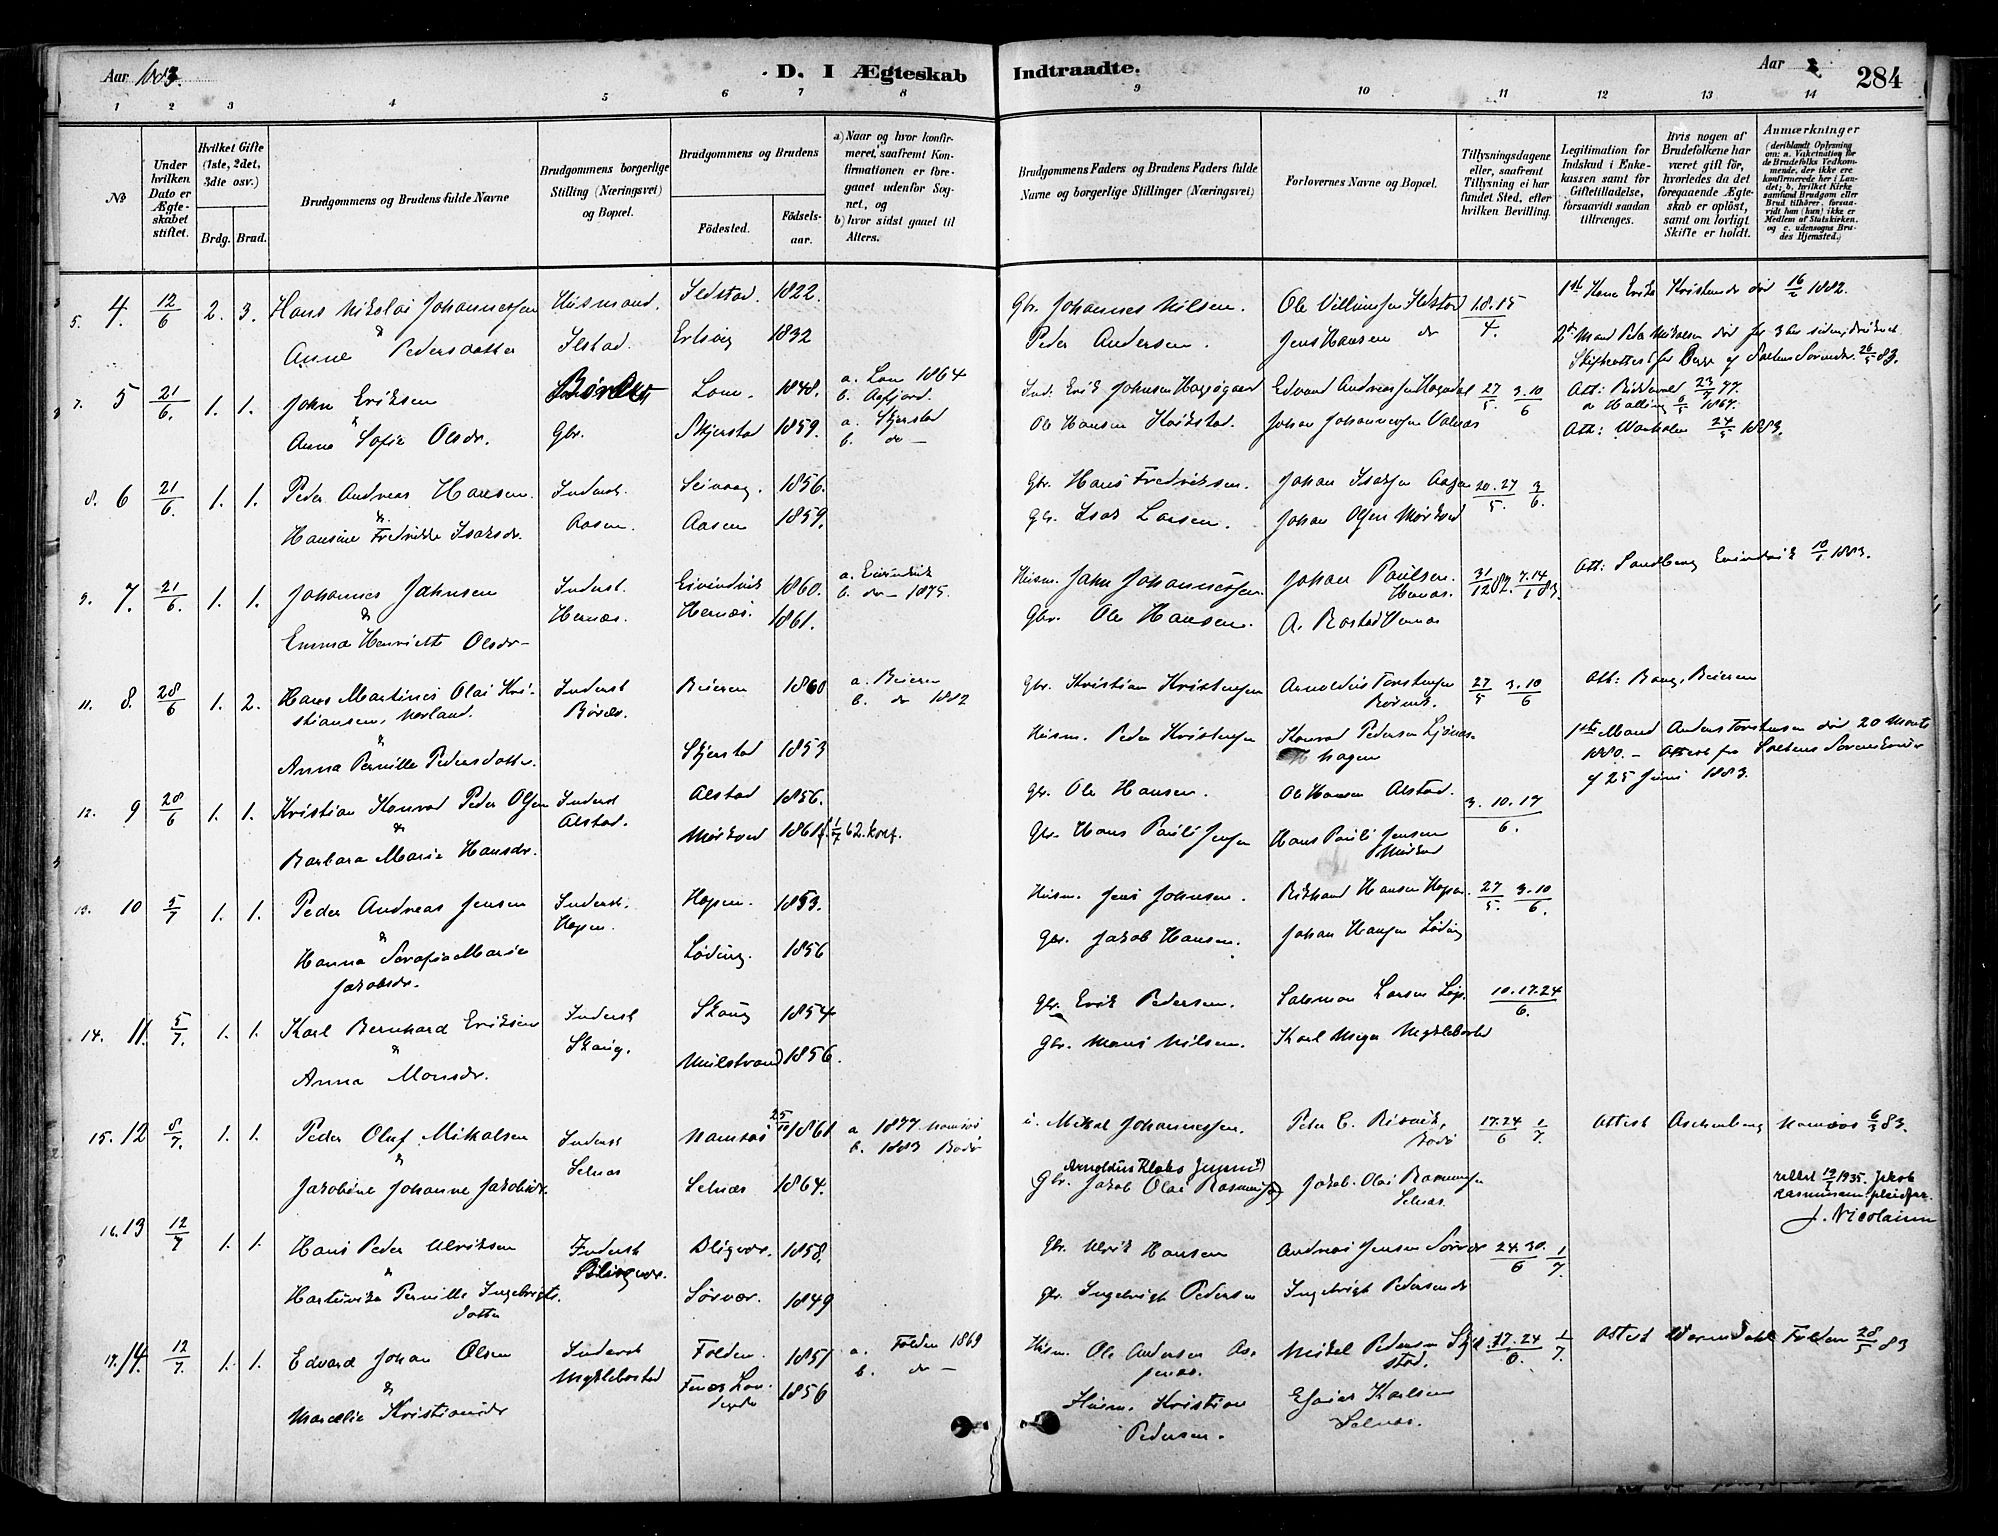 Aar 1883. D. I Ægteskab Indtraadte. Aar 284
1 2 3 4 5 6 7 8 9 10 11 12 13 14
№
Under hvilken Dato er Ægteskabet stiftet.
Hvilket Gifte (1ste, 2det, 3die osv.)
Brdg. Brud.
Brudgommens og Brudens fulde Navne
Brudgommens borgerlige Stilling (Næringsvei) og Bopæl.
Brudgommens og Brudens
Födested. Födselsaar.
a) Naar og hvor konfirmeret, saafremt Konfirmationen er foregaaet udenfor Sognet, og
b) hvor sidst gaaet til Alters.
Brudgommens Faders og Brudens Faders fulde Navne og borgerlige Stillinger (Næringsvei)
Forlovernes Navne og Bopæl.
Tillysningsdagene eller, saafremt Tillysning ei har fundet Sted, efter hvilken Bevilling.
Legitimation for Indskud i Enkekassen samt for Giftetilladelse, forsaavidt saadan tiltrænges.
Hvis nogen af Brudefolkene har været gift för, hvorledes da det foregaaende Ægteskab er oplöst, samt om lovligt Skifte er holdt.
Anmærkninger (deriblandt Oplysning om: a. Vakcination for de Brudefolks Vedkommende, der ikke ere konfirmerede her i Landet; b. hvilket Kirkesamfund Brudgom eller Brud tilhörer, forsaavidt han (hun) ikke er Medlem af Statskirken, og c. udensogns Brudes Hjemsted.)
5. 4. 12/6 2. 3. Hans Nikolai Johannessen Husmand. Ilstad. 1822. Gbr. Johannes Nilsen. Ole Villumsen Ilstad 1.8.15/4. 1ste Kone Død 16/2 1882.
&
Anne Pedersdatter Ilstad. Ertsvig 1832 Peder Andersen. Jens Hansen do 2den Mand Peder Mikalsen død for 3 Aar siden
Skifteattest fra 26/5 83.
7. 5 21/6. 1. 1. John Eriksen Lom. 1848. a. Lom 1864 Ind: Erik Johnsen Edvard Andreassen 27/5. 3.10/6 Att: 23/3 77.
& b.
Anne Sofie Olsdr. Gbr. Skjerstad 1859. a. Skjerstad Ole Hansen Johan Johannessen Valnæs Att: 24/5 1883.
b. do –
8. 6 21/6. 1. 1. Peder Andreas Hansen. Inderst. Seivaag. 1856. Gbr. Hans Fredriksen. Johan Isaksen Aasen 20.27/5. 3/6.
&
Hansine Fredrikke Isaksdr. Aasen. Aasen 1859. Gbr. Isak Larsen. Johan Olsen Mørkved
9. 7. 21/6. 1. 1. Johannes Jahnsen Inderst. Eivindvik 1860. a. Eivindvik Husm. Jahn Johannessen. Johan Paulsen Hernæs. 31/12 82. 7.14/1 83. Att: Sandberg Evindvik 10/1 1883.
& b. do – 1875.
Emma Henriette Olsdr – Hernæs. Hernæs. 1861. Gbr. Ole Hansen. A. Rostad Hernæs
11. 8. 28/6 1. 2. Hans Martines Olai Kristiansen, Norland. Inderst Beieren 1860 a. Beieren Gbr. Kristian Kristensen Arnoldus Torstensen 27/5 3.10/6 Att: Bang, Beieren
& b. do 1882
Anna Pernille Pedersdatter. Skjerstad 1853 Husm. Peder Kristensen Konrad Pedersen Hagen 1ste Mand Anders Torstensen død 20 Marts 1880. – Attest fra Saltens Sorenskriver af 25 Juni 1883.
12. 9 28/6 1. 1. Kristian Konrad Peder Olsen Inderst Alstad 1856. Gbr. Ole Hansen. Ole Hansen Alstad. 3. 10. 17/6.
&
Barbara Marie Hansdr. Alstad. Mørkved 1861 62. konf. Gbr. Hans Pauli Jensen Hans Pauli Jensen Mørkved
13. 10 5/7 1. 1. Peder Andreas Jensen Inderst. Hopen. 1853. Husm. Jens Johnsen. Rikhard Hansen Hopen. 27/5. 3.10/6.
&
Hanna Serafia Marie Jakobsdr. Hopen. Løding. 1856 Gbr. Jakob Hansen. Johan Hansen Løding
14. 11. 5/7. 1. 1. Karl Bernhard Eriksen Inderst Skaug 1854 Gbr. Erik Pedersen. Salomon Larsen 10.17.24/6.
&
Anna Monsdr. Skaug. 1856. Gbr. Mons Nilsen. Karl Meyer Myklebostad
15. 12 8/7. 1. 1. Peder Oluf Mikalsen Inderst Namsos 1861 a. 1877 Namsos i. Mikal Johannessen. Peter C. Bodø 17.24/6 1/7. Attest Aschenberg Namsos 6/3 83.
& b. 1883 Bodø
Jakobine Johanne Jakobsdr. Selnæs Selnæs 1864. Gbr. Arnoldus Klaks Jensen (Jakob Olai Rasmussen) Jakob Olai Rasmussen Selnæs. rettet 19/1 1935. Jakob Rasmussen pleiefar. J. Nicolaisen
16. 13 12/7 1. 1. Hans Peder Ulriksen Inderst Bligvær. 1858. Gbr. Ulrik Hansen Andreas Jensen Sørvær 24.30./6 1/7.
&
Hartvika Pernille Ingebrigtsdatter Bligvær. Sørvær. 1849 Gbr. Ingebrigt Pedersen Ingebrigt Pedersen do
17. 14. 12/7. 1. 1. Edvard Johan Olsen Inderst Folden. 1857 a. Folden 1869 Husm. Ole Andersen 17.24/6. 1/7. Attest Folden 28/5 83
& b. do –
Marcelie Kristiansdr Myklebostad 1856 Husm. Kristian Pedersen. Esaias Karlsen Selnæs.